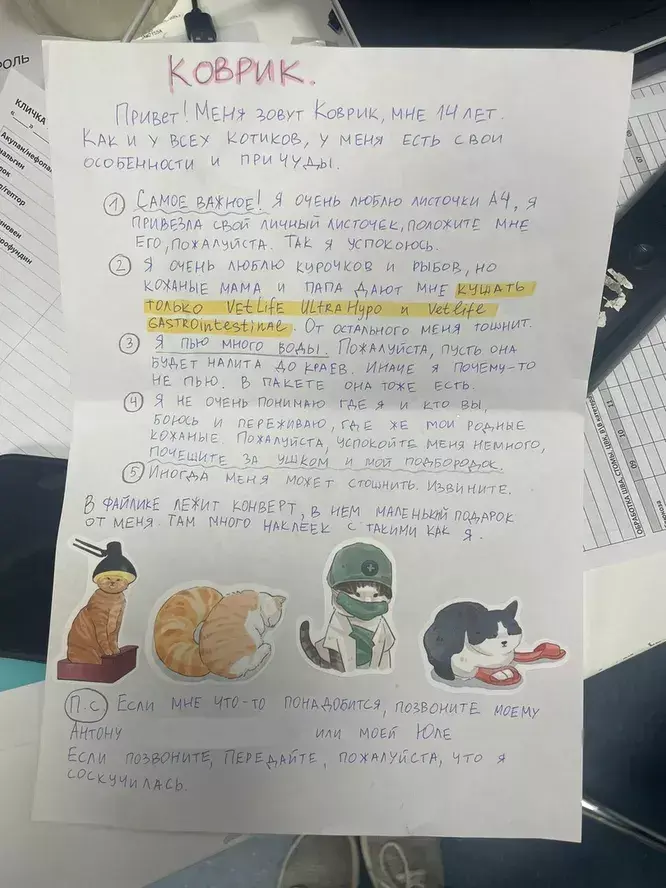 КОВРИК.
ПРИВЕТ! МЕНЯ ЗОВУТ КОВРИК, МНЕ 14 ЛЕТ.
КАК И У ВСЕХ КОТИКОВ, У МЕНЯ ЕСТЬ СВОИ
ОСОБЕННОСТИ И ПРИЧУДЫ.
① САМОЕ ВАЖНОЕ! Я ОЧЕНЬ ЛЮБЛЮ ЛИСТОЧКИ А4, Я
ПРИВЕЗЛА СВОЙ ЛИЧНЫЙ ЛИСТОЧЕК, ПОЛОЖИТЕ МНЕ
ЕГО, ПОЖАЛУЙСТА. ТАК Я УСПОКОЮСЬ.
② Я ОЧЕНЬ ЛЮБЛЮ КУРОЧКОВ И РЫБОВ, НО
КОЖАНЫЕ МАМА И ПАПА ДАЮТ МНЕ КУШАТЬ
ТОЛЬКО VETLIFE ULTRAHYPO И VETLIFE
GASTROINTESTINAL. ОТ ОСТАЛЬНОГО МЕНЯ ТОШНИТ.
③ Я ПЬЮ МНОГО ВОДЫ. ПОЖАЛУЙСТА, ПУСТЬ ОНА
БУДЕТ НАЛИТА ДО КРАЕВ. ИНАЧЕ Я ПОЧЕМУ-ТО
НЕ ПЬЮ. В ПАКЕТЕ ОНА ТОЖЕ ЕСТЬ.
④ Я НЕ ОЧЕНЬ ПОНИМАЮ ГДЕ Я И КТО ВЫ,
БОЮСЬ И ПЕРЕЖИВАЮ, ГДЕ ЖЕ МОИ РОДНЫЕ
КОЖАНЫЕ. ПОЖАЛУЙСТА, УСПОКОЙТЕ МЕНЯ НЕМНОГО,
ПОЧЕШИТЕ ЗА УШКОМ И МОЙ ПОДБОРОДОК.
⑤ ИНОГДА МЕНЯ МОЖЕТ СТОШНИТЬ. ИЗВИНИТЕ.
В ФАЙЛИКЕ ЛЕЖИТ КОНВЕРТ, В НЕМ МАЛЕНЬКИЙ ПОДАРОК
ОТ МЕНЯ. ТАМ МНОГО НАКЛЕЕК С ТАКИМИ КАК Я.
П.С ЕСЛИ МНЕ ЧТО-ТО ПОНАДОБИТСЯ, ПОЗВОНИТЕ МОЕМУ
АНТОНУ ИЛИ МОЕЙ ЮЛЕ
ЕСЛИ ПОЗВОНИТЕ, ПЕРЕДАЙТЕ, ПОЖАЛУЙСТА, ЧТО Я
СОСКУЧИЛАСЬ.
КЛИЧКА